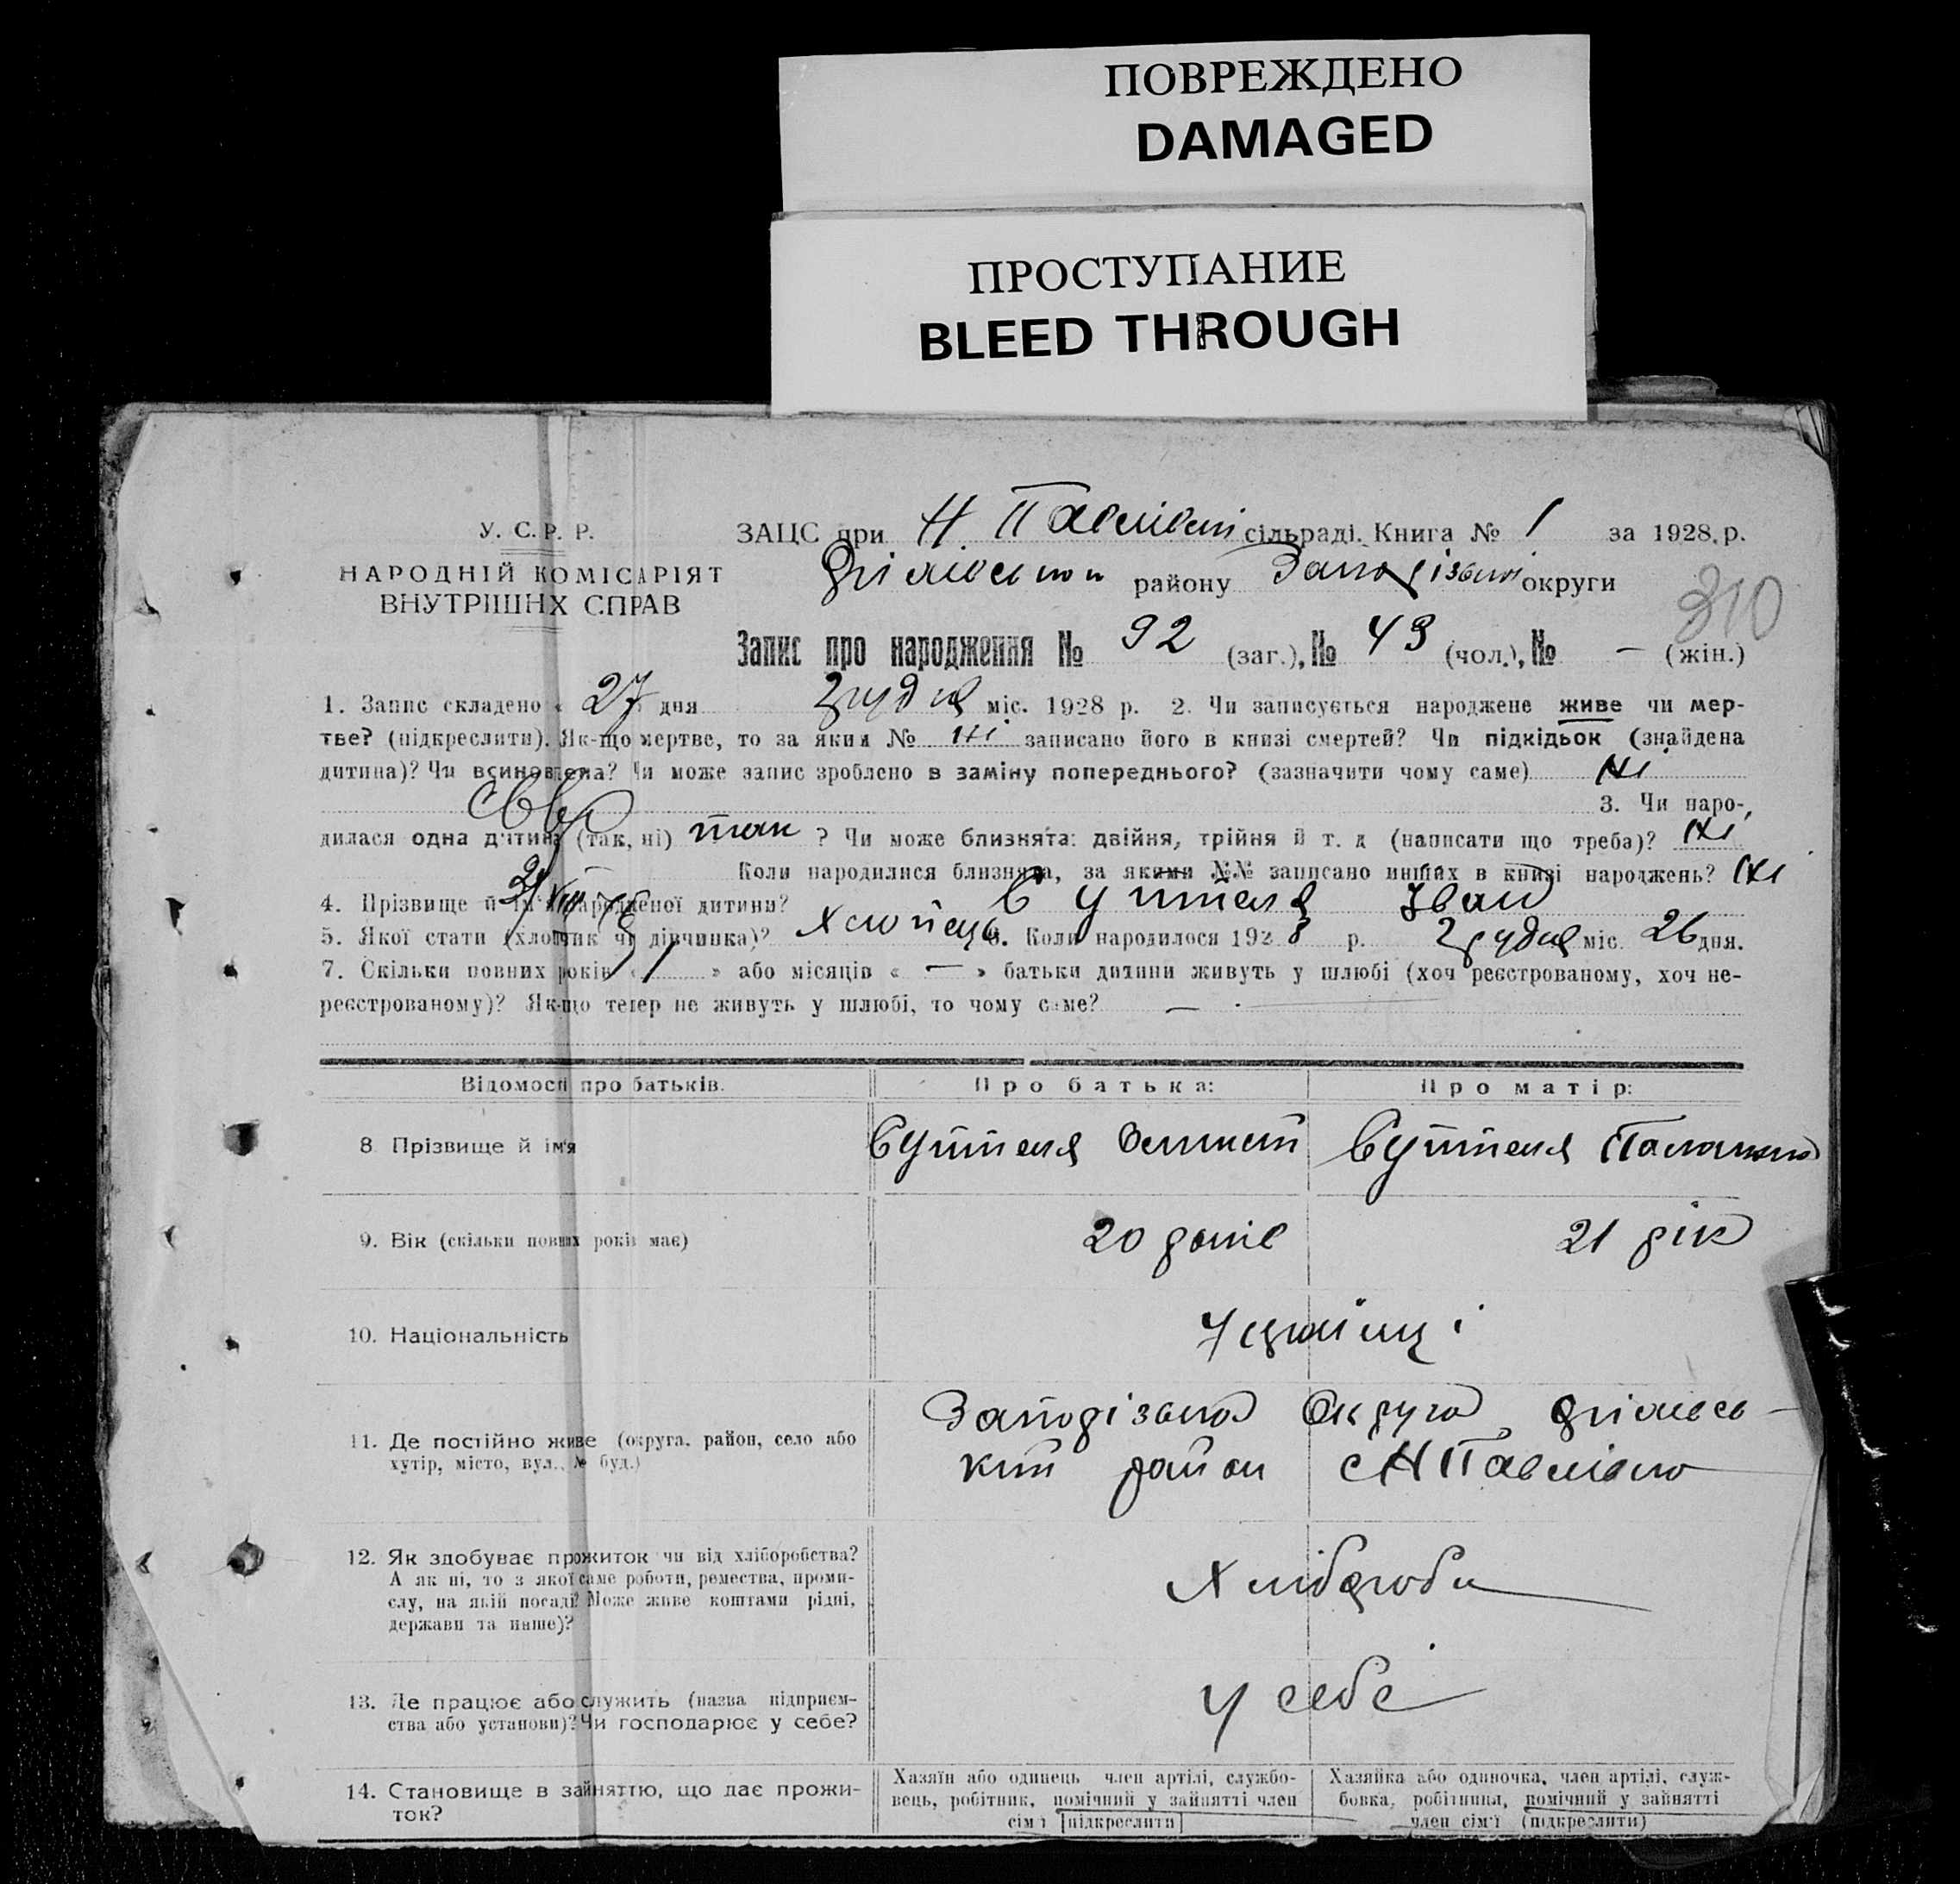 ПОВРЕЖДЕНО
DAMAGED
ПРОСТУПАНИЕ
BLEED THROUGH
У. С. Р. Р.
НАРОДНІЙ КОМІСАРІЯТ
ВНУТРІШНІХ СПРАВ
ЗАЦС при Н. Павлівській сільраді. Книга № 1 за 1928 р.
району Запорізької округи
310
Запис про народження № 92 (заг.), № 43 (чол.), № — (жін.)
1. Запис складено « 27 » дня грудня міс. 1928 р. 2. Чи записується народжене живе чи мер-
тве? (підкреслити). Як-що мертве, то за яким № ні записано його в книзі смертей? Чи підкідьок (знайдена
дитина)? Чи всиновлена? Чи може запис зроблено в заміну попереднього? (зазначити чому саме) ні
3. Чи наро-
дилася одна дитина (так, ні) так ? Чи може близнята: двійня, трійня й т. д (написати що треба)? ні
Коли народилися близнята, за якими №№ записано инших в книзі народжень? ні
4. Прізвище й ім'я народженої дитини? Іван
5. Якої стати (хлопчик чи дівчинка)? Хлопець 6. Коли народилося 1928 р. грудня міс. 26 дня.
7. Скільки повних років « 1 » або місяців « — » батьки дитини живуть у шлюбі (хоч реєстрованому, хоч не-
реєстрованому)? Як-що тепер не живуть у шлюбі, то чому саме? —
Відомости про батьків. Про батька: Про матір:
8 Прізвище й ім'я
9. Вік (скільки повних років має) 20 років 21 рік
10. Національність Українці
11. Де постійно живе (округа, район, село або
хутір, місто, вул., № буд.)
Запорізька Округа
кий район с Н Павлівка
12. Як здобуває прожиток чи від хліборобства?
А як ні, то з якої саме роботи, ремества, проми-
слу, на якій посаді? Може живе коштами рідні,
держави та инше)?
Хлібороби
13. Де працює або служить (назва підприєм-
ства або установи)? Чи господарює у себе?
у себе
14. Становище в зайняттю, що дає прожи-
ток?
Хазяїн або одинець член артілі, службо-
вець, робітник, помічний у зайнятті член
сім'ї (підкреслити)
Хазяйка або одиночка, член артілі, служ-
бовка, робітниця, помічний у зайнятті
член сім'ї (підкреслити)